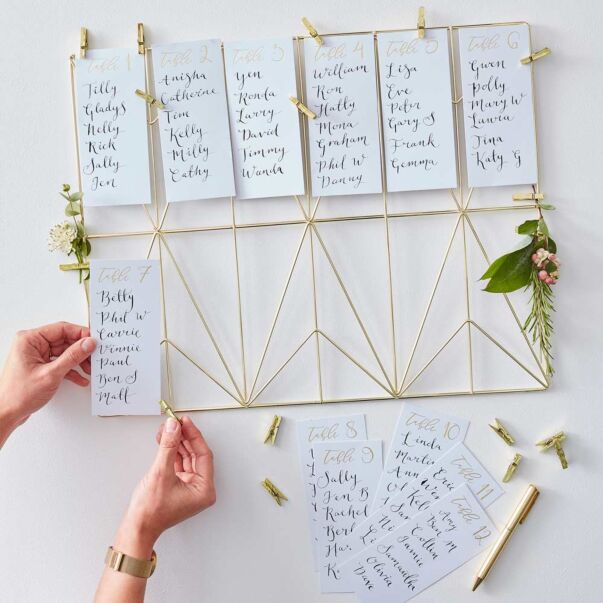 table 1
Tilly
Gladys
Nelly
Rick
Sally
Jen
table 2
Anisha
Catherine
Tim
Kelly
Milly
Cathy
table 3
Yen
Ronda
Larry
David
Timmy
Wanda
table 4
William
Ron
Hatty
Mona
Graham
Phil W
Danny
table 5
Lisa
Eve
Peter
Gary S
Frank
Gemma
table 6
Gwen
Polly
Mary W
Laura
Tina
Katy G
table 7
Betty
Phil W
Carrie
Vinnie
Paul
Ben S
Matt
table 8
table 9
Sally
Jen B
Rachel
table 10
Linda
Ann
table 11
Amy
Ben M
table 12
Colton
Jamie
Samantha
Olivia
Dave